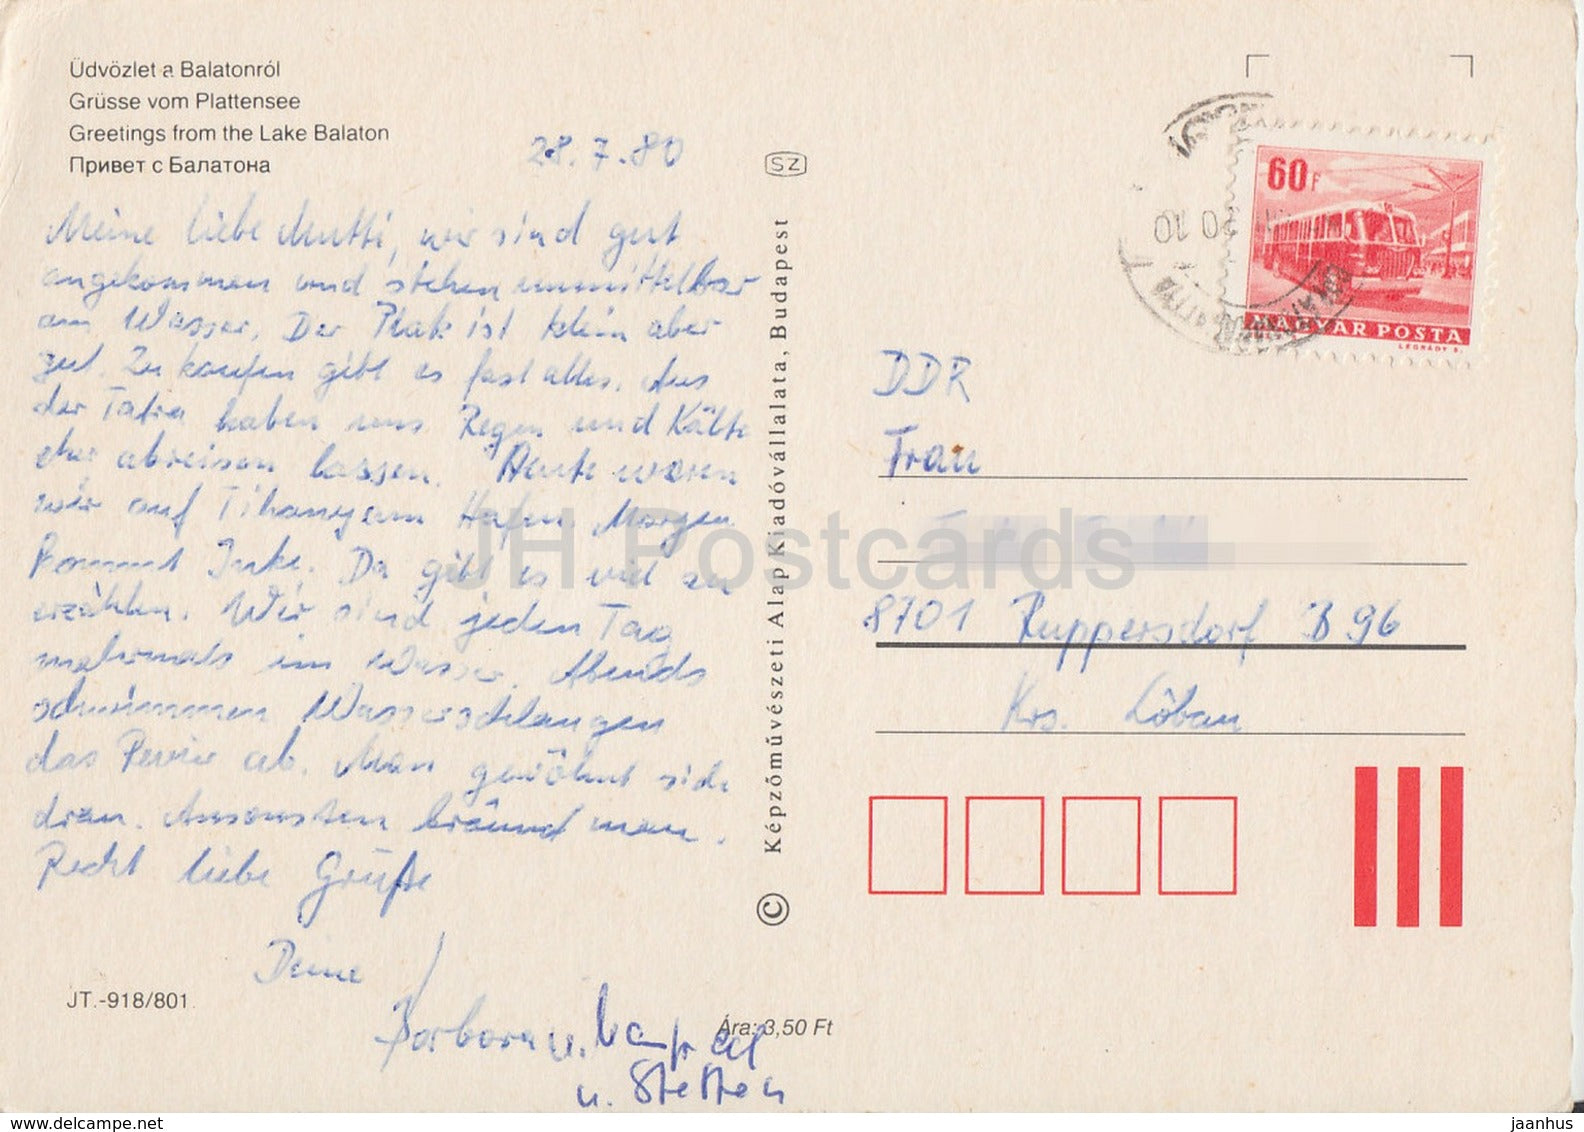 Üdvözlet a Balatonról
Grüsse vom Plattensee
Greetings from the Lake Balaton
Привет с Балатона
28.7.80
Meine liebe Mutti, wir sind gut
angekommen und stehen unmittelbar
am Wasser. Der Platz ist klein aber
gut. Zu kaufen gibt es fast alles. Aus
der Tatra haben uns Regen und Kälte
eher abreisen lassen. Heute waren
wir auf Tihany am Hafen. Morgen
kommt Inke. Da gibt es viel zu
erzählen. Wir sind jeden Tag
mehrmals im Wasser. Abends
schwimmen Wasserschlangen
das Revier ab. Man gewöhnt sich
dran. Ansonsten bräunt man.
Recht liebe Grüße
Deine
Barbara u. Manfred
u. Steffen
JT.-918/801
Ára: 3,50 Ft
SZ
Képzőművészeti Alap Kiadóvállalata, Budapest
©
60 F
MAGYAR POSTA
LÉGRÁDY S.
DDR
Frau
8701 Ruppersdorf B 96
Krs. Löbau
JH Postcards
https://www.jaanhus.com
jaanhus